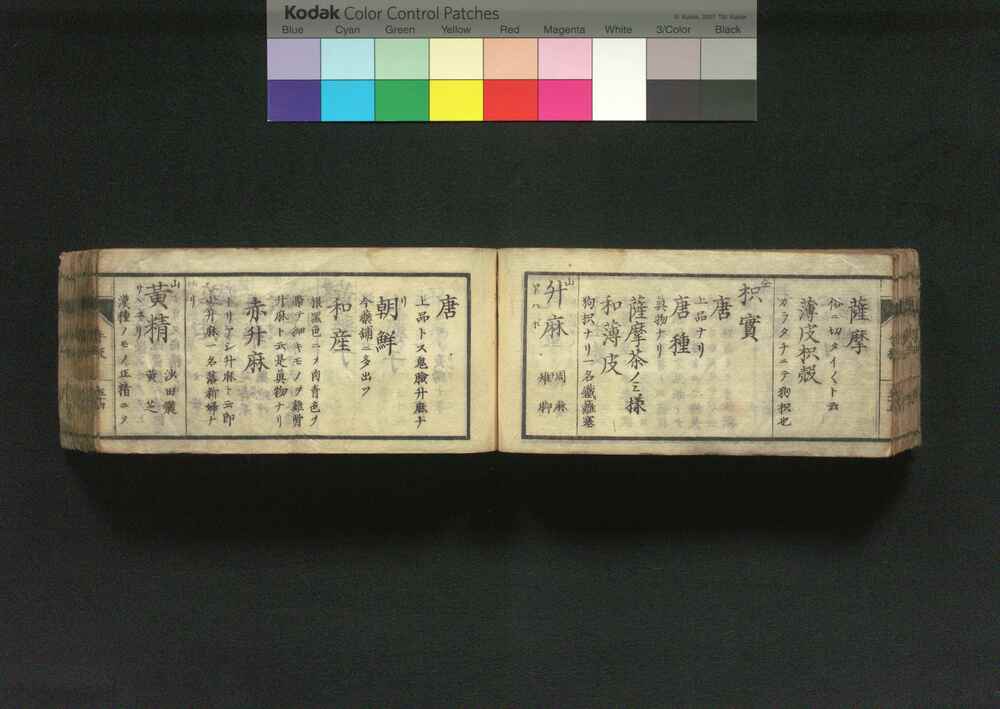 Kodak Color Control Patches
© Kodak, 2007 TM: Kodak
Blue Cyan Green Yellow Red Magenta White 3/Color Black
薩摩
俗ニ切タイ〱ト云
薄皮枳殻
カラタチニテ狗枳也
枳實
唐
上品ナリ
唐種
真物ナリ
薩摩茶ノミ様
和薄皮
狗枳ナリ一名鐵籬塞
山
升麻
周麻
雉脚
唐
上品トス鬼臉升麻ナ
リ
朝鮮
今藥鋪ニ多出ツ
和産
根黒色ニメ肉青色ヲ
帯ナ細キモノヲ雞骨
升麻ト云是真物ナリ
赤升麻
トリアシ升麻ト云即
小升麻一名落新婦ナ
リ
山
黄精
黄芝
漢種ノモノ正精ニヲ